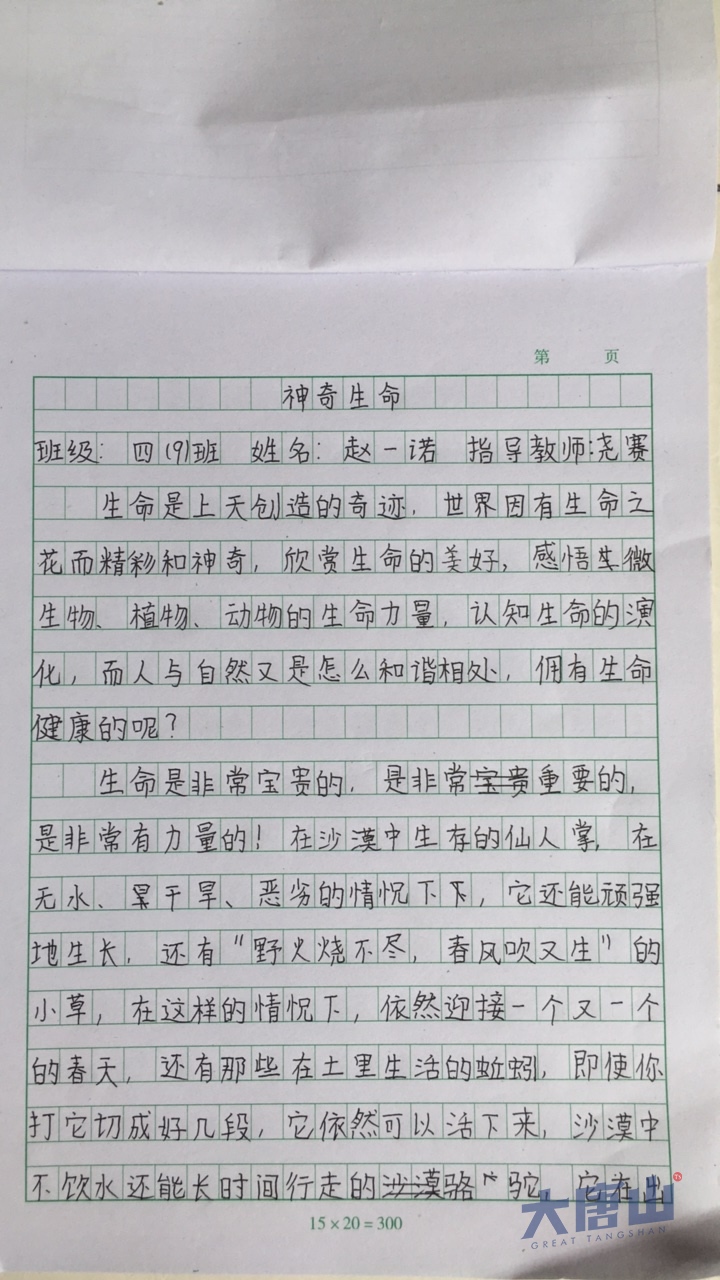 第 页
神奇生命
班级：四(9)班 姓名：赵一诺 指导教师：浇赛
生命是上天创造的奇迹，世界因有生命之
花而精彩和神奇，欣赏生命的美好，感悟生微
生物、植物、动物的生命力量，认知生命的演
化，而人与自然又是怎么和谐相处，佣有生命
健康的呢？
生命是非常宝贵的，是非常宝贵重要的，
是非常有力量的！在沙漠中生存的仙人掌，在
无水、干旱、恶劣的情况下下，它还能顽强
地生长，还有“野火烧不尽，春风吹又生”的
小草，在这样的情况下，依然迎接一个又一个
的春天，还有那些在土里生活的蚯蚓，即使你
打它切成好几段，它依然可以活下来，沙漠中
不饮水还能长时间行走的沙漠骆驼，它在出
15×20=300
大唐山
GREAT TANGSHAN